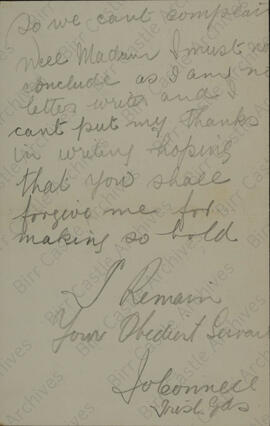 So we cant complain
well Madam I must no
conclude as I am no
letter writer and I
cant put my thanks
in writing hoping
that you shall
forgive me for
making so bold
I Remain
Your Obedient Servant
J O Connell
Irish Gds
Birr Castle Archives